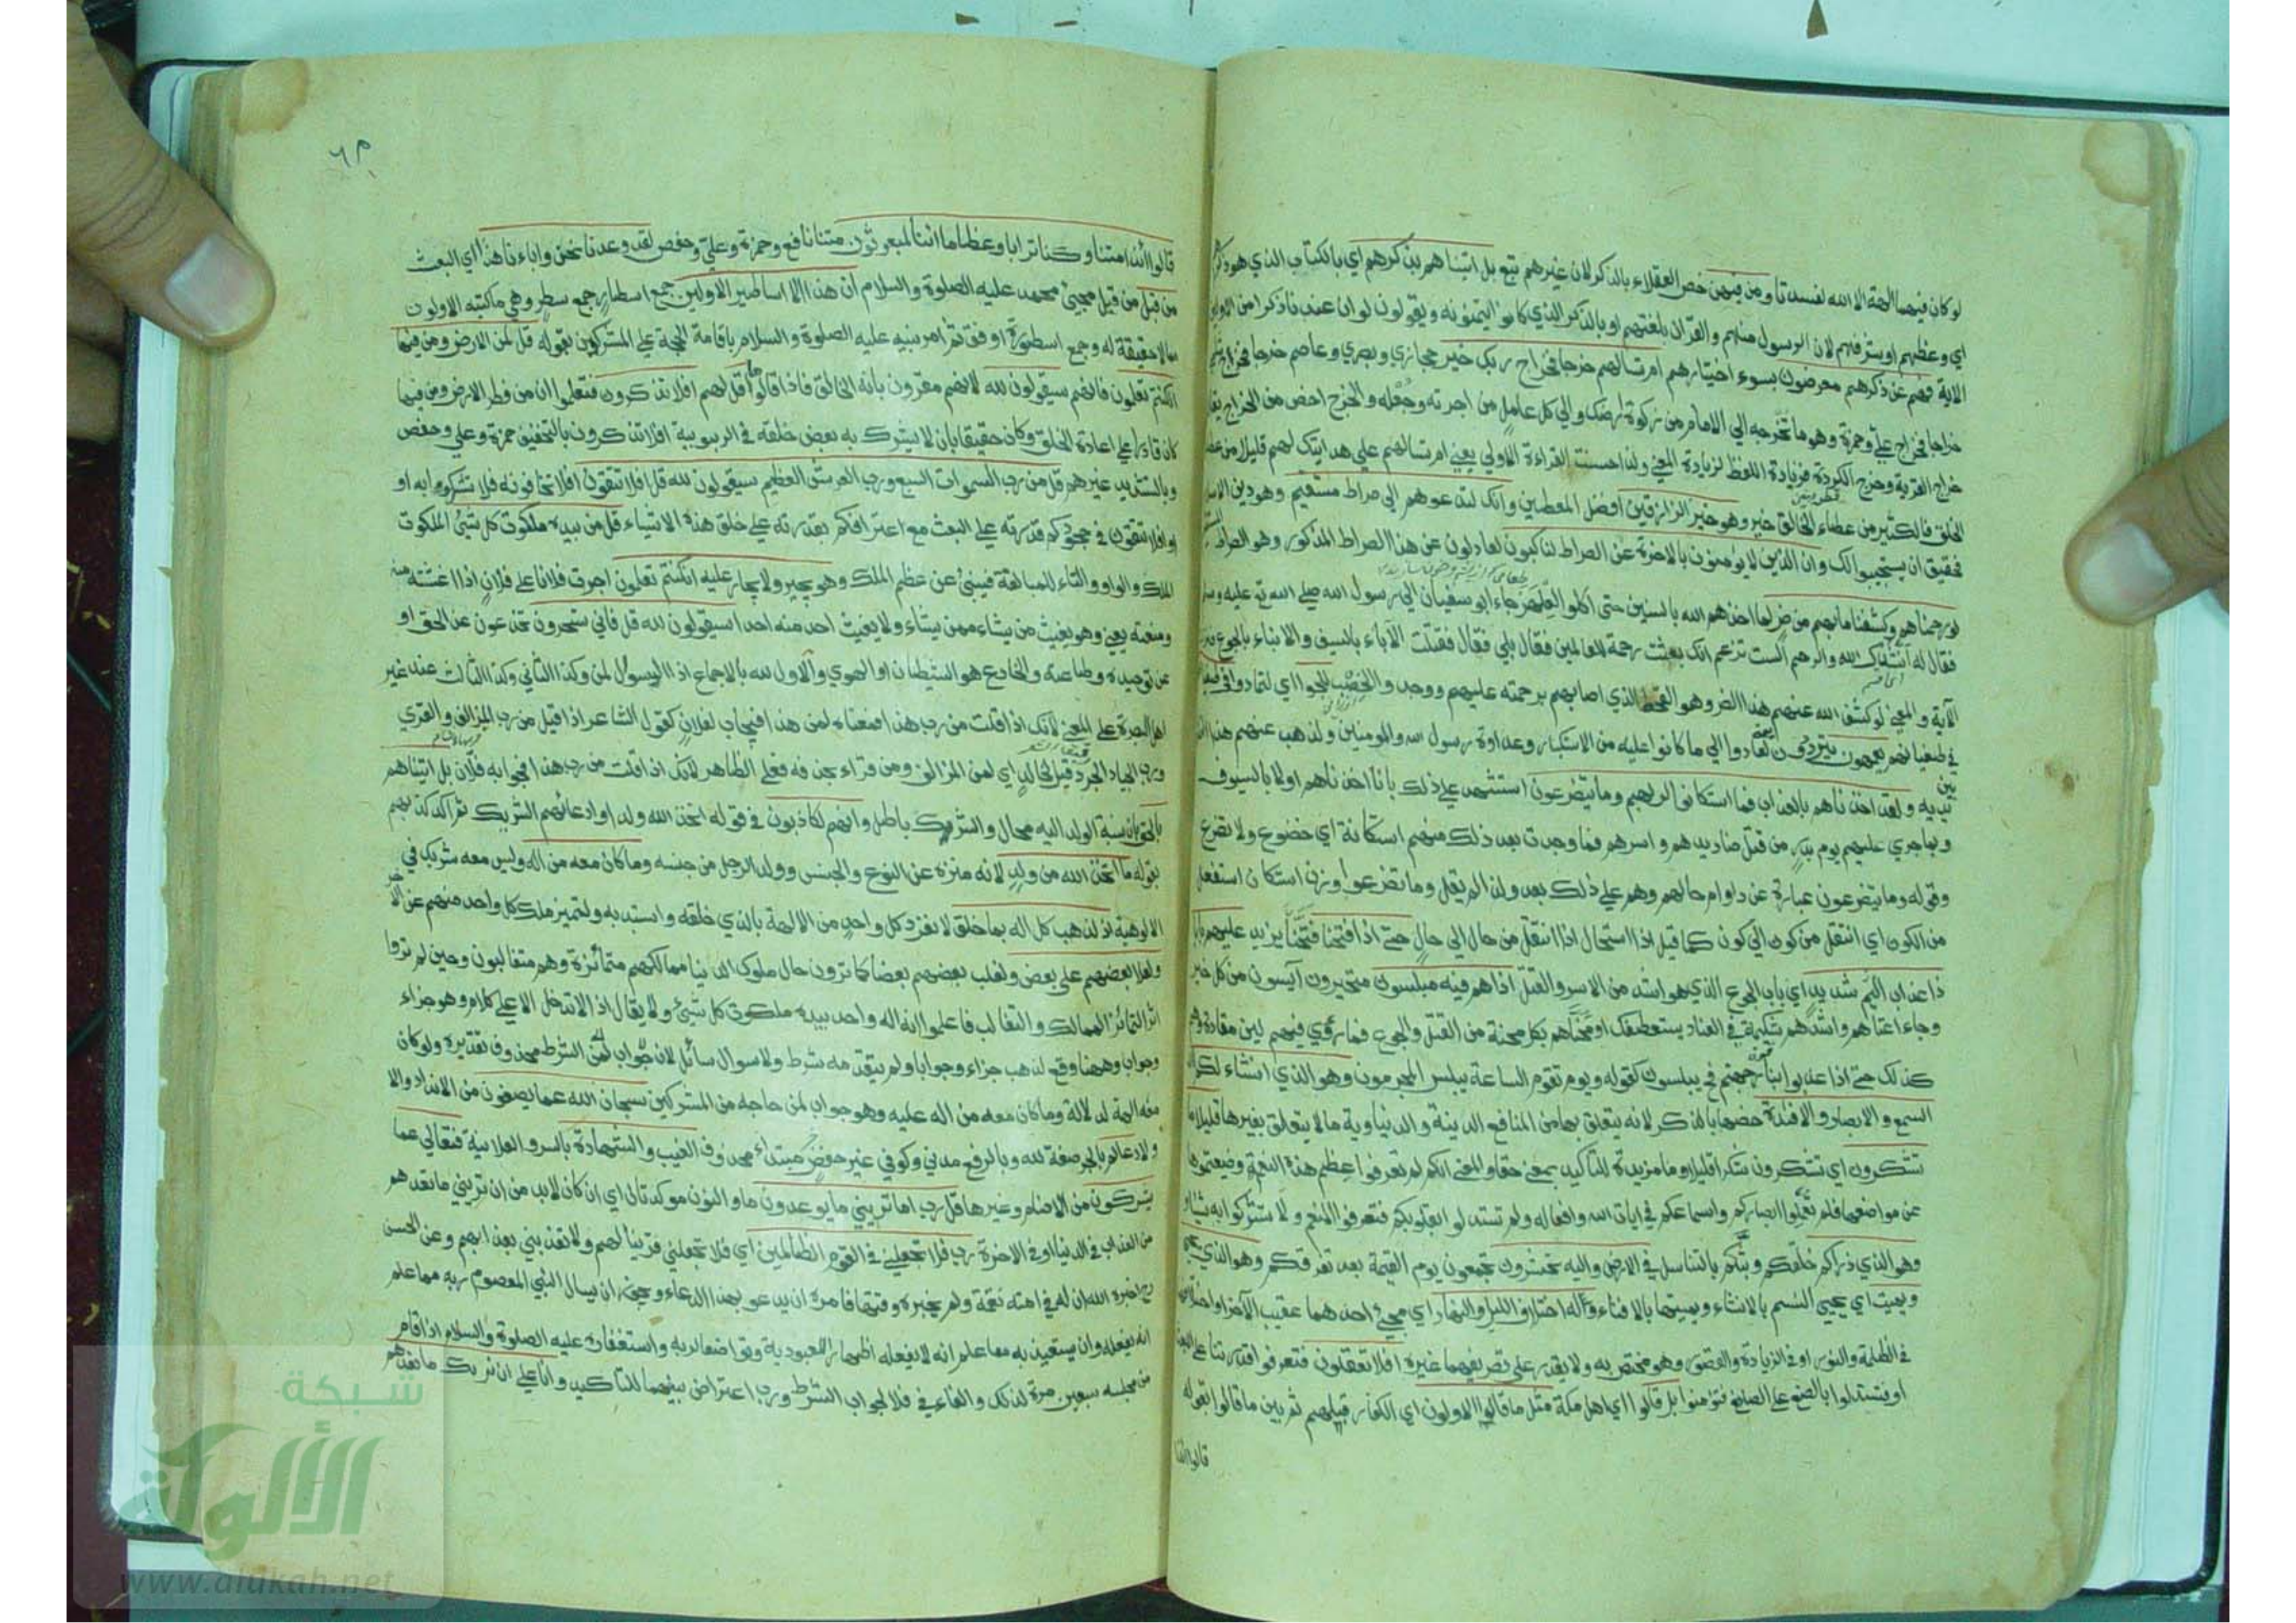 لو كان فيهما الهة الا الله لفسدتا ومن فيهن خص العقلاء بالذكر لان غيرهم تبع بل اتيناهم بذكرهم اي بالكتاب الذي هو ذكرهم
اي وعظهم او شرفهم لان الرسول منهم والقرآن بلغتهم او بالذكر الذي كانوا يتمنونه ويقولون لو ان عندنا ذكرا من الاولين
الاية فهم عن ذكرهم معرضون بسوء اختيارهم ام تسالهم خرجا فخراج ربك خير حجازي وبصري وعاصم خرجا فخرج شامي
خراجا فخراج علي وحمزة وهو ما تخرجه الي الامام من زكوة ارضك والي كل عامل من اجرته وجعله والخرج اخص من الخراج يقال
خراج القرية وخرج الكردة فزيادة اللفظ لزيادة المعني ولذا حسنت القراءة الاولي يعني ام تسالهم علي هدايتك لهم قليلا من عطاء
الخلق فالكثير من عطاء الخالق خير وهو خير الرازقين افضل المعطين وانك لتدعوهم الي صراط مستقيم وهو دين الاسلام
فحقيق ان يستجيبوا لك وان الذين لا يؤمنون بالاخرة عن الصراط لناكبون لعادلون عن هذا الصراط المذكور وهو الصراط المستقيم
ولو رحمناهم وكشفنا ما بهم من ضر لما اخذهم الله بالسنين حتى اكلوا العلهز جاء ابو سفيان الي رسول الله صلي الله عليه وسلم
فقال له انشدك الله والرحم الست تزعم انك بعثت رحمة للعالمين فقال بلي فقال قتلت الآباء بالسيف والابناء بالجوع فنزلت
الآية والمعني لو كشف الله عنهم هذا الضر وهو القحط الذي اصابهم برحمته عليهم ووجدوا الخصب للجوا اي لتمادوا في طغيانهم
في طغيانهم يعمهون يترددون لعادوا الي ما كانوا عليه من الاستكبار وعداوة رسول الله والمومنين ولذهب عنهم هذا
بين يديه ولقد اخذناهم بالعذاب فما استكانوا لربهم وما يتضرعون استشهد علي ذلك بانا اخذناهم اولا بالسيوف
وبما جري عليهم يوم بدر من قتل صناديدهم واسرهم فما وجدت بعد ذلك منهم استكانة اي خضوع ولا تضرع
وقوله وما يتضرعون عبارة عن دوام حالهم وهم علي ذلك بعد ولذا لم يقل وما تضرعوا وزن استكان استفعل
من الكون اي انتقل من كون الي كون كما قيل اذا استحال اذا انتقل من حال الي حال حتي اذا فتحنا فتحنا يزيد عليهم بابا
ذا عذاب اليم شديد اي باب الجوع الذي هو اشد من الاسر والقتل اذا هم فيه مبلسون متحيرون آيسون من كل خير
وجاء اعتاهم واشدهم شكيمة في العناد يستعطفك او محناهم بكل محنة من القتل والجوع فما رؤي فيهم لين مقادة وهم
كذلك حتي اذا عذبوا بنار جهنم فح يبلسون كقوله ويوم تقوم الساعة يبلس المجرمون وهو الذي انشاء لكم
السمع والابصار والافئدة خصها بالذكر لانه يتعلق بها من المنافع الدينية والدنياوية ما لا يتعلق بغيرها قليلا ما
تشكرون اي تشكرون شكرا قليلا وما مزيدة للتاكيد بمعني حقا والمعني انكم لم تعرفوا عظم هذه النعم وضيعتموها
عن مواضعها فلم تعملوا ابصاركم واسماعكم في ايات الله وافعاله ولم تستدلوا بقلوبكم فتعرفوا المنعم ولا تشركوا به شيئا
وهو الذي ذراكم خلقكم وبثكم بالتناسل في الارض واليه تحشرون تجمعون يوم القيمة بعد تفرقكم وهو الذي يحيي
ويميت اي يحيي النسم بالانشاء ويميتها بالافناء وله اختلاف الليل والنهار اي مجيء احدهما عقيب الآخر او اختلافهما
في الظلمة والنور او في الزيادة والنقصان وهو مختص به ولا يقدر علي تصريفهما غيره افلا تعقلون فتعرفوا قدرتنا علي البعث
او تستدلوا بالصنع علي الصانع فتؤمنوا بل قالوا اي اهل مكة مثل ما قال الاولون اي الكفار قبلهم ثم بين ما قالوا بقوله
قالوا ائذا
قالوا ائذا متنا وكنا ترابا وعظاما ائنا لمبعوثون متنا نافع وحمزة وعلي وحفص لقد وعدنا نحن واباءنا هذا اي البعث
من قبل من قبل مجيئ محمد عليه الصلوة والسلام ان هذا الا اساطير الاولين جمع اسطار جمع سطر وهي ما كتبه الاولون
مما لا حقيقة له وجمع اسطورة اوفق ثم امر نبيه عليه الصلوة والسلام باقامة الحجة علي المشركين بقوله قل لمن الارض ومن فيها
ان كنتم تعلمون فانهم سيقولون لله لانهم مقرون بانه الخالق فاذا قالوا قل لهم افلا تذكرون فتعلموا ان من فطر الارض ومن فيها
كان قادرا علي اعادة الخلق وكان حقيقا بان لا يشرك به بعض خلقه في الربوبية افلا تذكرون بالتخفيف حمزة وعلي وحفص
وبالتشديد غيرهم قل من رب السموات السبع ورب العرش العظيم سيقولون لله قل افلا تتقون افلا تخافونه فلا تشركوا به او
افلا تتقون في جحودكم قدرته علي البعث مع اعترافكم بقدرته علي خلق هذه الاشياء قل من بيده ملكوت كل شئ الملكوت
الملك والواو والتاء للمبالغة فينبئ عن عظم الملك وهو يجير ولا يجار عليه ان كنتم تعلمون اجرت فلانا علي فلان اذا اغثته منه
ومنعته يعني وهو يغيث من يشاء ممن يشاء ولا يغيث احد منه احدا سيقولون لله قل فاني تسحرون تخدعون عن الحق او
عن توحيده وطاعته والخادع هو الشيطان او الهوي والاول لله بالاجماع اذ السوال لمن وكذا الثاني وكذا الثالث عند غير
اهل البصرة علي المعني لانك اذا قلت من رب هذا فمعناه لمن هذا فيجاب لفلان كقول الشاعر اذا قيل من رب المزالف والقري
ورب الجياد الجرد قيل لخالد اي لمن المزالف ومن قراء بحذفه فعلي الظاهر لانك اذا قلت من رب هذا فجوابه فلان بل اتيناهم
بالحق بان نسبة الولد اليه محال والشريك باطل وانهم لكاذبون في قوله اتخذ الله ولدا وادعائهم الشريك ثم اكد كذبهم
بقوله ما اتخذ الله من ولد لانه منزه عن النوع والجنس وولد الرجل من جنسه وما كان معه من اله وليس معه شريك في
الالوهية اذا لذهب كل اله بما خلق لانفرد كل واحد من الالهة بالذي خلقه واستبد به ولتميز ملك كل واحد منهم عن الاخر
ولعلا بعضهم علي بعض ولغلب بعضهم بعضا كما ترون حال ملوك الدنيا ممالكهم متمائزة وهم متغالبون وحين لم تروا
اثر التمائز الممالك والتغالب فاعلموا انه اله واحد بيده ملكوت كل شئ ولا يقال اذا لا تدخل الا علي كلام وهو جزاء
وجواب وههنا وقع لذهب جزاء وجوابا ولم يتقدمه شرط ولا سوال سائل لان الشرط محذوف تقديره ولو كان
معه الهة لدلالة وما كان معه من اله عليه وهو جواب لمن حاجه من المشركين سبحان الله عما يصفون من الانداد والا
ولاد عالم بالجر صفة لله وبالرفع مدني وكوفي غير حفص خبر مبتداء محذوف الغيب والشهادة بالسر والعلانية فتعالي عما
يشركون من الاصنام وغيرها قل رب اما تريني ما يوعدون ما والنون موكدتان اي ان كان لابد من ان تريني ما تعدهم
من العذاب في الدنيا او في الاخرة رب فلا تجعلني في القوم الظالمين اي فلا تجعلني قرينا لهم ولا تعذبني بعذابهم وعن الحسن
رح اخبره الله ان له في امته نقمة ولم يخبره وقتها فامره ان يدعو بهذا الدعاء ويجوز ان يسال النبي المعصوم ربه مما علم
انه يفعله وان يستعيذ به مما علم انه لا يفعله اظهارا للعبودية وتواضعا لربه واستغفاره عليه الصلوة والسلام اذا قام
من مجلسه سبعين مرة لذلك والفاء في فلا لجواب الشرط ورب اعتراض بينهما للتاكيد وانا علي ان نريك ما نعدهم
شبكة
الألوكة
www.alukah.net